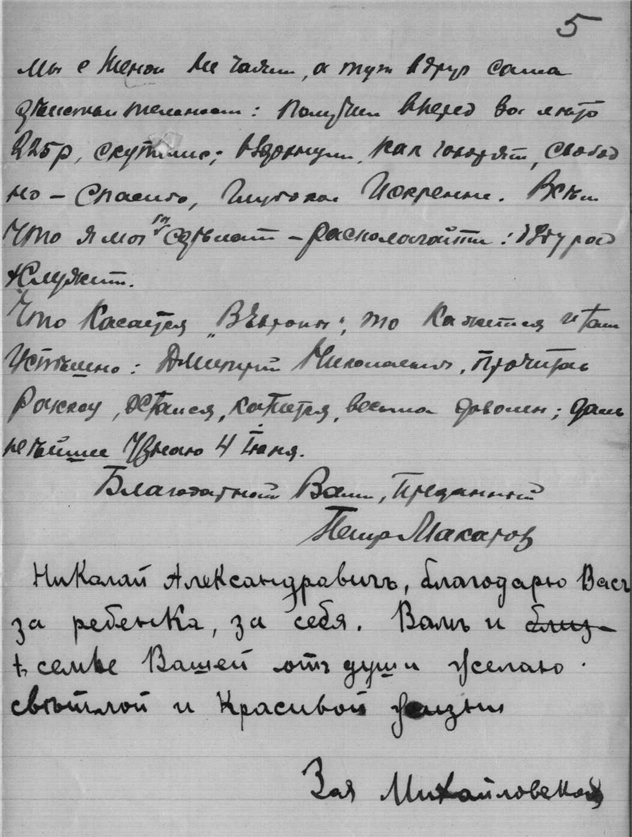 5
Мы с женой не чаяли, а тут вдруг сама
действительность: Получил вперед за лето
225р, скутились; вздохнули, как говорят, свобод
но – Спасибо, Глубокое Искреннее. Всем
Что я могу сделать – располагайте: буду рад
служить.
Что Касается „Вѣны", то Кажется и там
Успѣшно: Дмитрий Николаевич, прочитав
рассказ, остался, кажется, весьма доволен; даль
нейшее Узнаю 4 Iюня.
Благодарный Вам, Преданный
Петр Макаров
Николай Александравичъ, благодарю Васъ
за ребенка, за себя. Вамъ и близ
семье Вашей отъ души желаю
свѣтлой и Красивой жизни
Зоя Михайловская